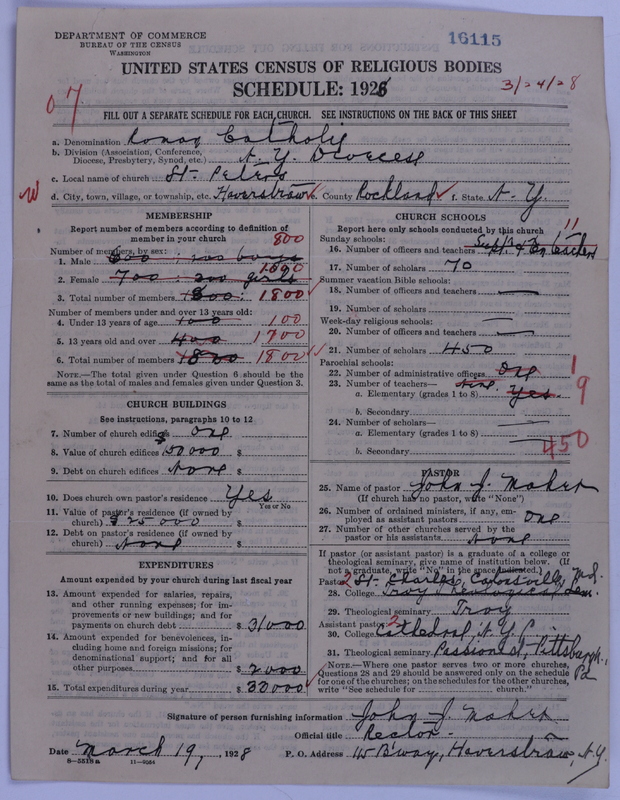 DEPARTMENT OF COMMERCE
BUREAU OF THE CENSUS
WASHINGTON
16115
UNITED STATES CENSUS OF RELIGIOUS BODIES
SCHEDULE: 1926
3/24/28
07
FILL OUT A SEPARATE SCHEDULE FOR EACH CHURCH. SEE INSTRUCTIONS ON THE BACK OF THIS SHEET
a. Denomination Roman Catholic
b. Division (Association, Conference,
Diocese, Presbytery, Synod, etc.) N. Y. Diocese
c. Local name of church St. Peter's
W d. City, town, village, or township, etc. Haverstraw e. County Rockland f. State N. Y.
MEMBERSHIP
Report number of members according to definition of
member in your church
800
Number of members, by sex:
1. Male 800 : 100 boys
1000
2. Female 700 : 200 girls
3. Total number of members 1800: 1800
Number of members under and over 13 years old:
4. Under 13 years of age 100 100
5. 13 years old and over 400 1700
6. Total number of members 1800 1800
NOTE.—The total given under Question 6 should be
same as the total of males and females given under Question 3.
CHURCH BUILDINGS
See instructions, paragraphs 10 to 12
7. Number of church edifices one
8. Value of church edifices 150000 $
9. Debt on church edifices None $
10. Does church own pastor's residence Yes
Yes or No
11. Value of pastor's residence (if owned by
church) $25000 $
12. Debt on pastor's residence (if owned by
church) None $
EXPENDITURES
Amount expended by your church during last fiscal year
13. Amount expended for salaries, repairs,
and other running expenses; for im-
provements or new buildings; and for
payments on church debt $ 31000
14. Amount expended for benevolences, in-
cluding home and foreign missions; for
denominational support; and for all
other purposes $ 2000
15. Total expenditures during year $
CHURCH SCHOOLS
Report here only schools conducted by this church
Sunday schools: 11
16. Number of officers and teachers
17. Number of scholars 70
Summer vacation Bible schools:
18. Number of officers and teachers —
19. Number of scholars —
Week-day religious schools: —
20. Number of officers and teachers —
21. Number of scholars 450
Parochial schools:
22. Number of administrative officers One 1
23. Number of teachers— Nine 9
a. Elementary (grades 1 to 8) Yes
b. Secondary
24. Number of scholars—
a. Elementary (grades 1 to 8) — 450
b. Secondary
PASTOR
25. Name of pastor John J. Maher
(If church has no pastor, write "None")
26. Number of ordained ministers, if any, em-
ployed as assistant pastors One
27. Number of other churches served by the
pastor or his assistants None
If pastor (or assistant pastor) is a graduate of a college or
theological seminary, give name of institution below. (If
not a graduate, write "No" in the space indicated.)
Pastor: 2 St. Charles, Catonsville,
28. College Troy Theological Sem.
29. Theological seminary Troy
Assistant pastor: 2
30. College Cathedral, N. Y. C.
31. Theological seminary Passionist, Pittsburgh,
Pa
NOTE.—Where one pastor serves two or more churches,
Questions 28 and 29 should be answered only on the schedule
for one of the churches; on the schedules for the other churches,
write "See schedule for church."
Signature of person furnishing information John J. Maher
Official title Rector
Date March 19, 1928 P. O. Address 115 B'way, Haverstraw, N. Y.
8—5518 a 11—9054